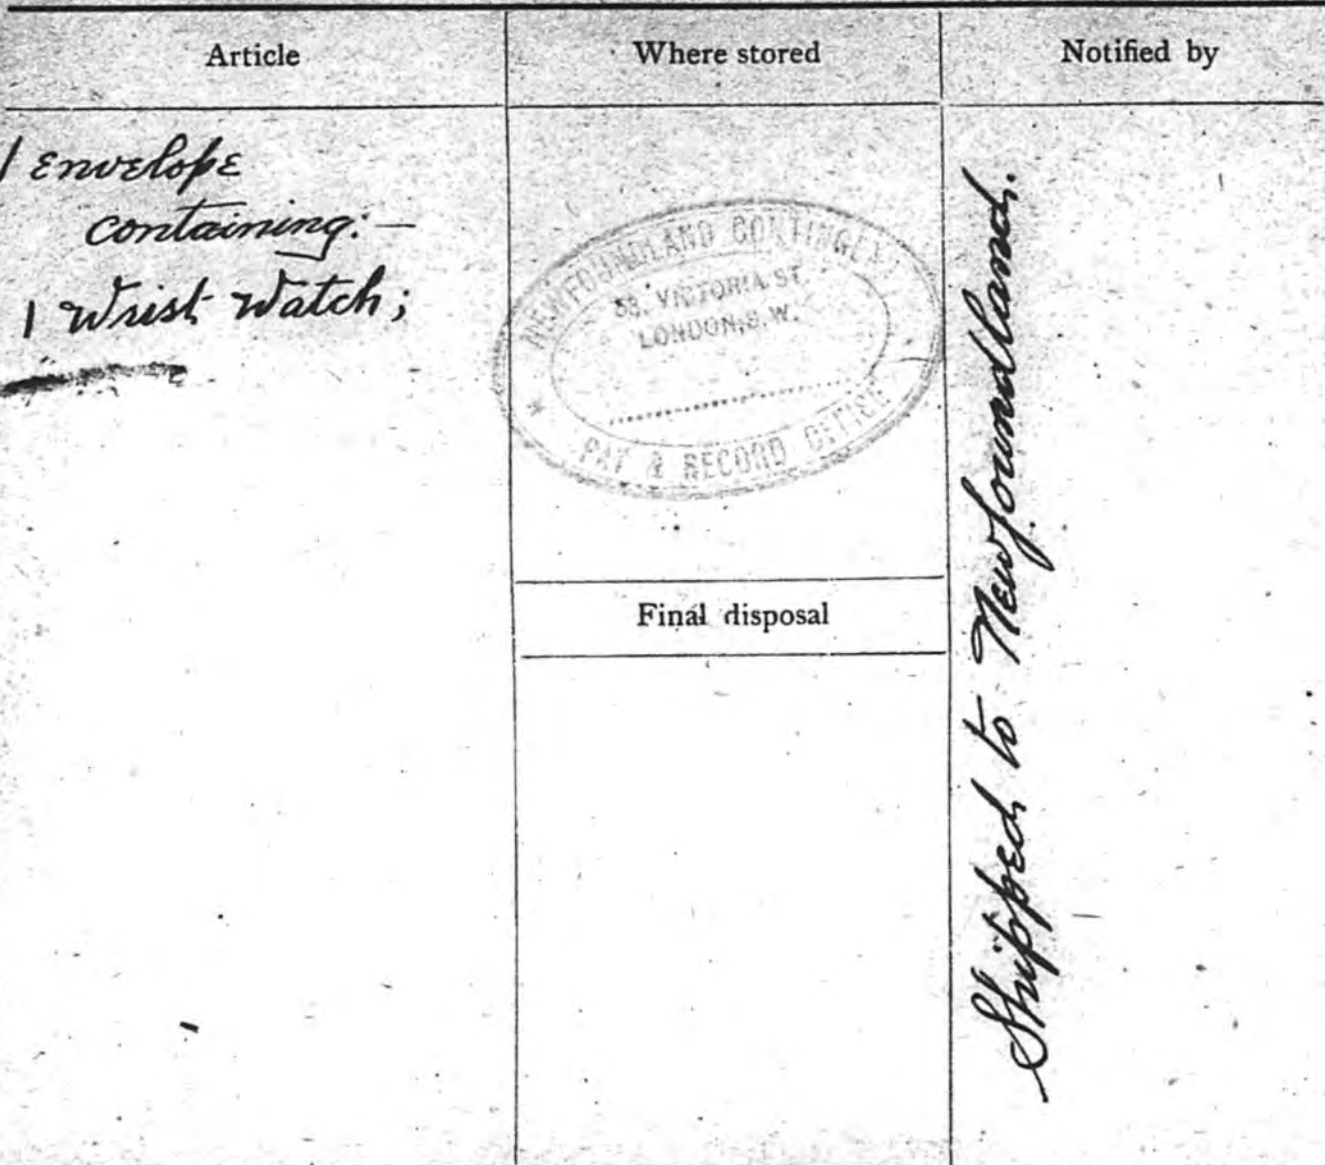 Article
Where stored
Notified by
1 Envelope
containing:—
1 Wrist Watch;
NEWFOUNDLAND CONTINGENT
58, VICTORIA ST.
LONDON, S.W.
PAY & RECORD OFFICE
Final disposal
Shipped to Newfoundland.